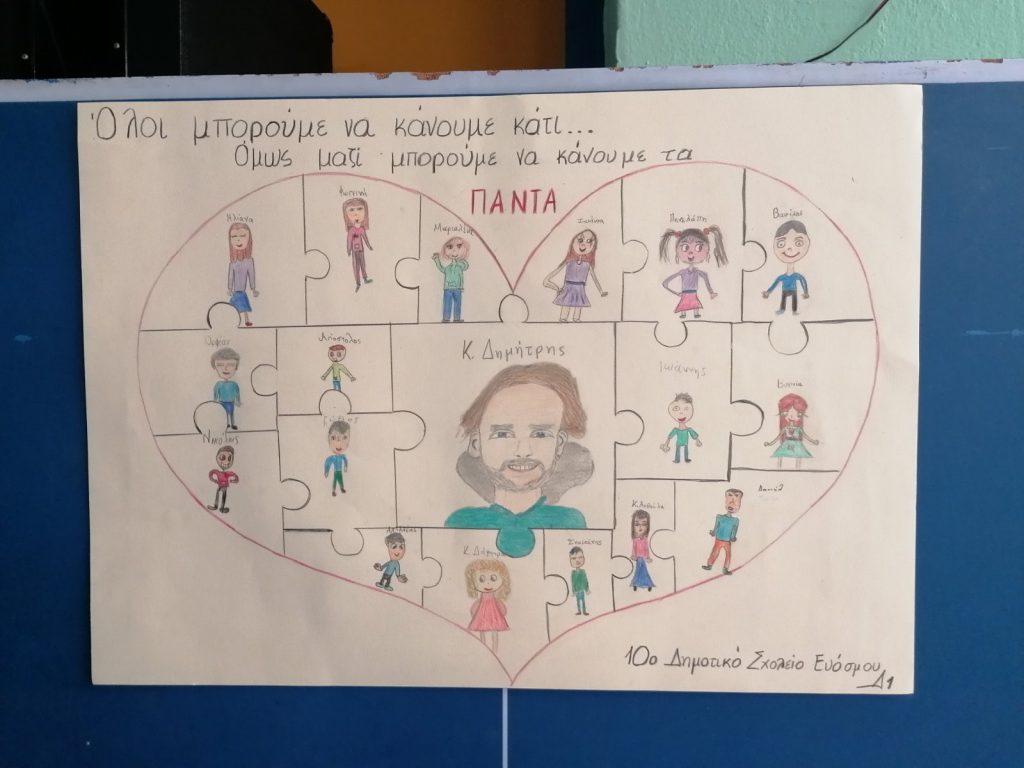 Όλοι μπορούμε να κάνουμε κάτι...
Όμως μαζί μπορούμε να κάνουμε τα
ΠΑΝΤΑ
Ηλιάνα
Φωτεινή
Μαριαλένα
Ιωάννα
Πηνελόπη
Βασίλης
Ορφέας
Απόστολος
Κ. Δημήτρης
Ιωάννης
Νικόλας
Δανιήλ
Κ. Δήμητρα
10ο Δημοτικό Σχολείο Ευόσμου
Δ1